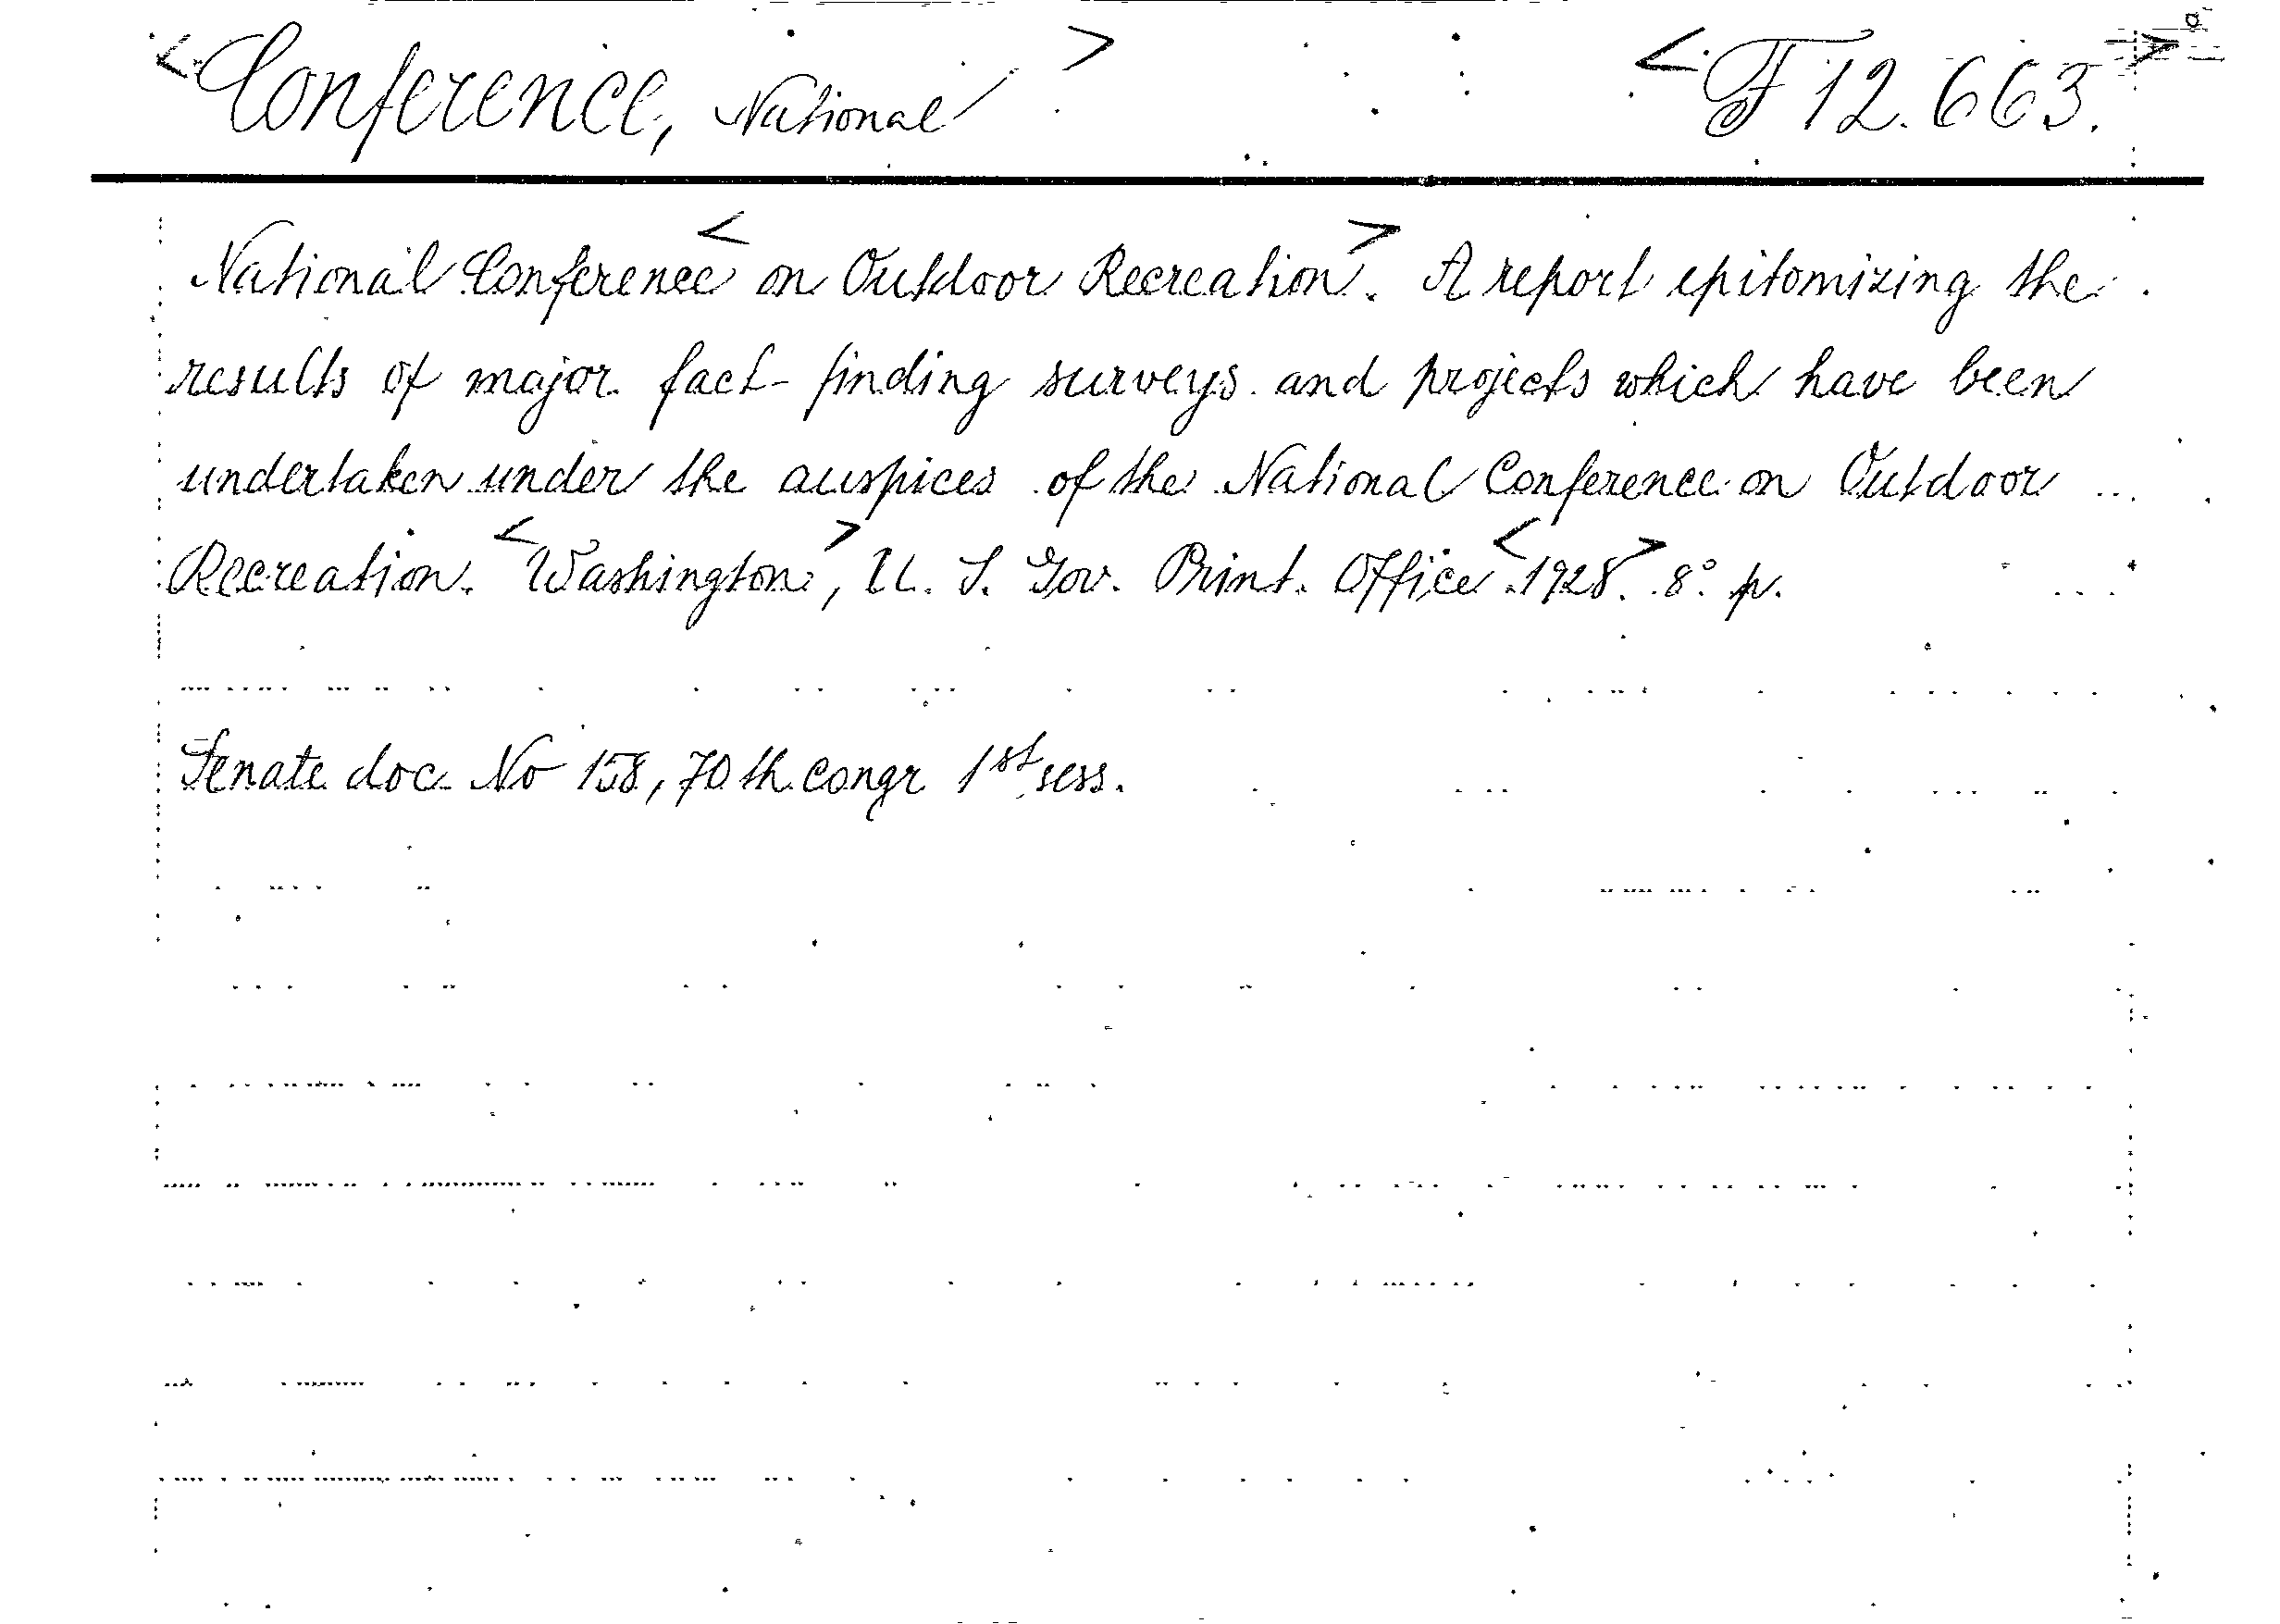 <Conference, National> <F 12.663.>
National Conference <on Outdoor Recreation>. A report epitomizing the
results of major fact-finding surveys and projects which have been
undertaken under the auspices of the National Conference on Outdoor
Recreation. <Washington>, U. S. Gov. Print. Office <1928>. 8° p.
Senate doc. No 158, 70th congr 1st sess.